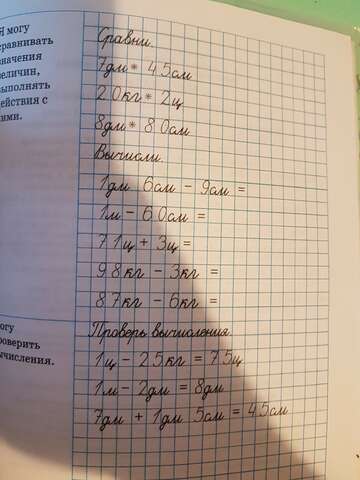 Я могу
сравнивать
значения
величин,
выполнять
действия с
ними.
Сравни.
7дм * 45см
20кг * 2ц
8дм * 80см
Вычисли.
1дм 6см - 9см =
1м - 60см =
71ц + 3ц =
98кг - 3кг =
87кг - 6кг =
могу
проверить
вычисления.
Проверь вычисления.
1ц - 25кг = 75ц
1м - 2дм = 8дм
7дм + 1дм 5см = 45см